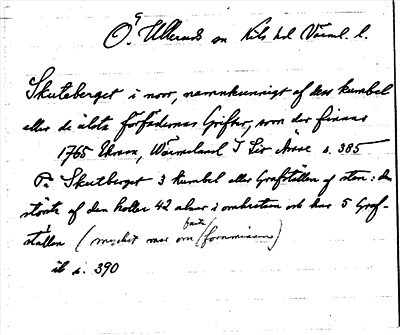 Ö. Ullerud sn Kils hd Värml. l.
Skuteberget i norr, namnkunnigt af dess kumbel
eller de älsta förfädernas Grifter, som der finnas
1765 Warm, Wärmeland I Sir Aose s. 385
På Skutberget 3 Kumbel eller Grafställen af sten: den
störste af dem holler 42 alnar i omkretsen och har 5 Graf-
ställen (mycket mer om fasta fornminnen)
ib s. 390